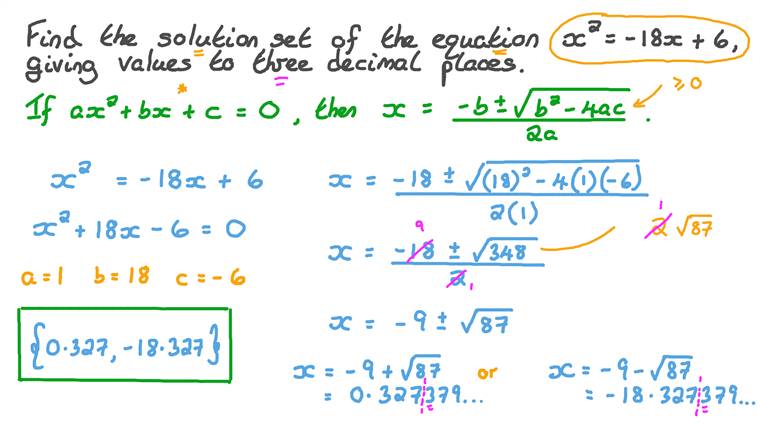 Find the solution set of the equation x² = -18x + 6,
giving values to three decimal places.
* ≥ 0
If ax² + bx + c = 0, then x = (-b ± √(b² - 4ac)) / 2a .
x² = -18x + 6
x² + 18x - 6 = 0
a = 1 b = 18 c = -6
{0.327, -18.327}
x = (-18 ± √((18)² - 4(1)(-6))) / 2(1)
x = (-18 ± √348) / 2
9 1
1 2 √87
x = -9 ± √87
x = -9 + √87 or x = -9 - √87
= 0.327379... = -18.327379...